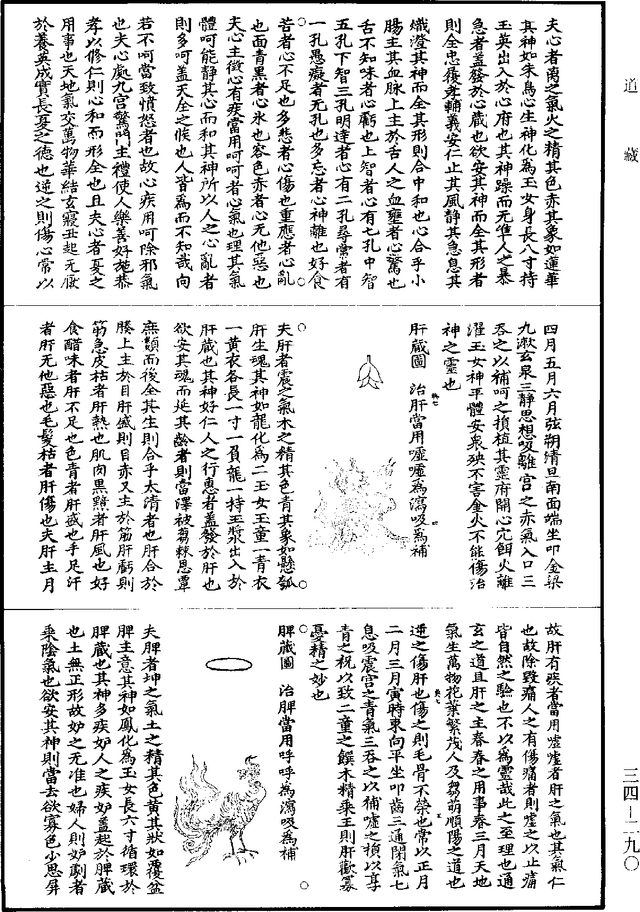 道藏
夫心者离之氣火之精其色赤其象如蓮華
其神如朱鳥心生神化為玉女身長八寸持
玉英出入於心府也其神躁而无準人之暴
急者蓋發於心藏也欲安其神而全其形者
則全忠履孝輔義安仁止其風靜其急息其
熾澄其神而全其形則合中和也心合乎小
腸主其血脉上主於舌人之血壅者心驚也
舌不知味者心虧也上智者心有七孔中智
五孔下智三孔明達者心有二孔尋常者有
一孔愚癡者无孔也多忘者心神離也好食
苦者心不足也多悲者心傷也重應者心亂
也面青黑者心氷也容色赤者心无他惡也
夫心主徵心有疾當用呵呵者心氣也理其氣
體呵能靜其心而和其神所以人之心亂者
則多呵蓋天全之候也人皆為而不知哉向
若不呵當致憤怒者也故心疾用呵除邪氣
也夫心處九宫驚門主禮使人樂善好施恭
孝以修仁則心和而形全也且夫心者夏之
用事也天地氣交萬物華結玄寢丑起无厭
於養英成實長夏之德也逆之則傷心常以
四月五月六月弦朔清旦南面端坐叩金梁
九漱玄泉三靜思想吸離宫之赤氣入口三
吞之以補呵之損植其靈府開心穴餌火離
濯玉女神平體安衆殃不害金火不能傷治
神之靈也
肝藏圖　治肝當用噓噓為瀉吸為補
夫肝者震之氣木之精其色青其象如懸瓠
肝生魂其神如龍化為二玉女玉童一青衣
一黄衣各長一寸一負龍一持玉漿出入於
肝藏也其神好仁人之行惠者蓋發於肝也
欲安其魂而延其齡者則當澤被蒭䔥恩覃
庶類而後全其生則合乎太清者也肝合於
膝上主於目肝盛則目赤又主於筋肝虧則
筋急皮枯者肝熱也肌肉黒黯者肝風也好
食醋味者肝不足也色青者肝盛也手足汗
者肝无他惡也毛髪枯者肝傷也夫肝主月
故肝有疾者當用嘘嘘者肝之氣也其氣仁
也故除毀痛人之有傷痛者則嘘之以止痛
皆自然之驗也不以為靈哉此之至理也通
玄之道且肝之主春春之用事春三月天地
氣生萬物花葉繁茂人及蒭萌順陽之道也
逆之傷肝也傷之則毛骨不榮也常以正月
二月三月寅時東向平坐叩齒三通閉氣七
息吸震宫之青氣三吞之以補嘘之損以享
青之祝以致二童之饌木精乘王則肝歡纂
憂精之妙也
脾藏圖　治脾當用呼呼為瀉吸為補
夫脾者坤之氣土之精其色黄其狀如覆盆
脾主意其神如鳳化為玉女長六寸循環於
脾藏也其神多疾妒人之疾妒蓋起於脾藏
也土無正形故妒之无准也婦人則妒劇者
乘陰氣也欲安其神則當去欲寡色少思屏
三四－二九〇